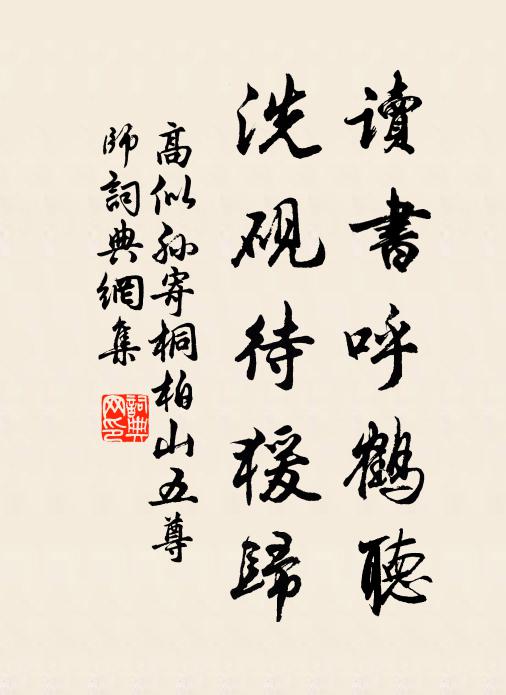 讀書呼鶴聽
洗硯待猨歸
高似孫寄桐柏山五尊
師詞典網集
詞典網印